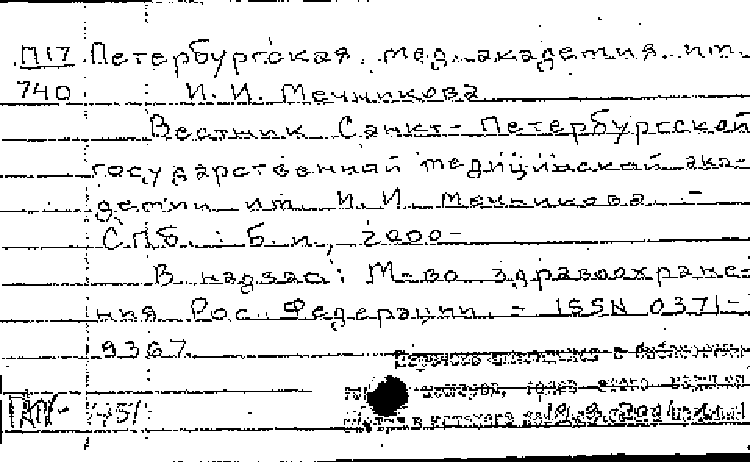 П17 Петербургская мед. академия им.
740 И. И. Мечникова
Вестник Санкт-Петербургской
государственной медицинской ака-
демии им. И. И. Мечникова. -
СПб. : Б. и., 2000-
В надзаг: М-во здравоохране-
ния Рос. Федерации. - ISSN 0371-
9367.
в библиотеке